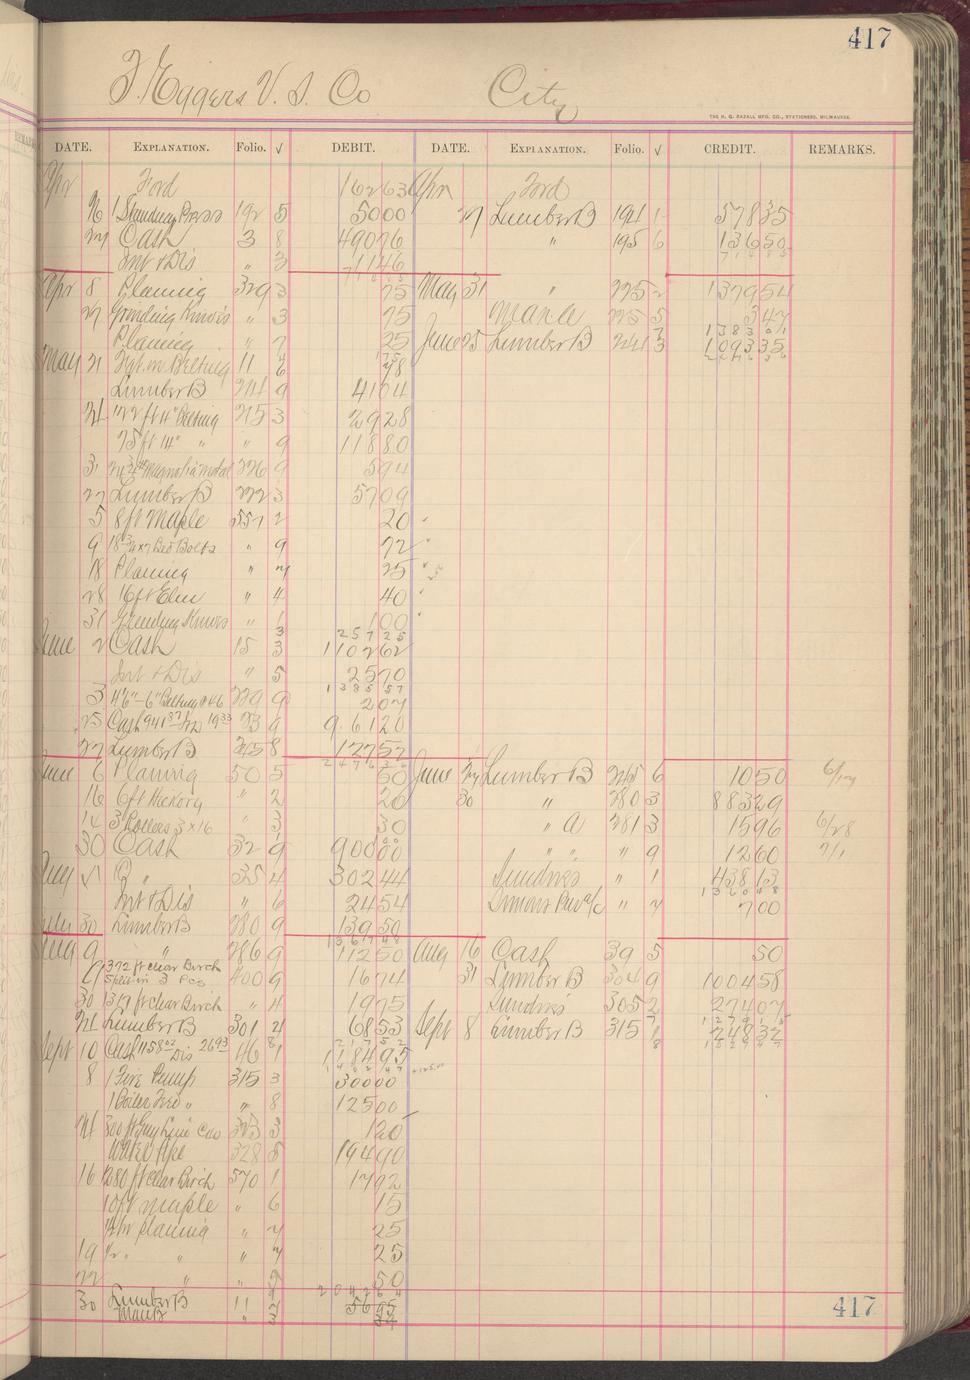 417
F. Eggers V. S. Co City
THE H. G. RAZALL MFG. CO., STATIONERS, MILWAUKEE.
DATE. EXPLANATION. Folio. √ DEBIT. DATE. EXPLANATION. Folio. √ CREDIT. REMARKS.
Apr Ford 16263 Apr Ford
26 1 Standing Press 192 5 5000 27 Lumber B 191 1 57835
27 Cash 3 8 49076 " 195 6 13650
Int & Dis " 3 1146
Apr 8 Planing 329 3 75 May 31 " 225 2 137954
27 Grinding Knives " 3 75 Mana 225 5 347
Planing " 7 25 June 25 Lumber B 241 3 109335
May 21 Frt. on Belting 11 6 48
Lumber B 214 9 4104
21 122 ft 4" Belting 215 3 2928
75 ft 14" " " 9 11880
31 24 3/4# Magnolia metal 226 9 594
27 Lumber B 222 3 5709
5 8 ft Maple 557 2 20
9 18 3/4 x 7 Bed Bolts " 9 72
18 Planing " 7 25
28 16 ft Elm " 4 40
31 Grinding Knives " 1 100
2 5 7 2 5
June 2 Cash 15 3 110262
Int & Dis " 5 2570
1 3 8 5 5 7
3 4'6"-6" Belting @ 46 229 9 207
25 Cash 941 87 Frt 19 33 23 9 96120
27 Lumber B 245 8 12752
June 6 Planing 50 5 50 June 27 Lumber B 245 6 1050 6/27
16 6 ft Hickory " 2 20 30 " 280 3 88329
14 3 Rollers 3 x 16 " 3 30 " A 281 3 1596 6/28
30 Cash 32 9 90000 " " " 9 1260 7/1
Aug " 35 4 30244 Sundries " 1 43813
Int & Dis " 6 2454 Simons Pur a/c " 7 700
30 Lumber B 280 9 13950
1 3 6 7 4 8
Aug 9 " 286 9 11250 Aug 16 Cash 39 5 50
9 372 ft clear Birch
Split in 3 Pcs 400 9 1674 31 Lumber B 304 9 100458
30 1317 ft clear Birch " 4 1975 Sundries 305 2 27407
31 Lumber B 301 4 6853 Sept 8 Lumber B 315 24832
Sept 10 Cash 1158 02 Dis 26 93 46 1 118495
8 1 Fire Pump 315 3 30000
1 Boiler Feed " " 8 12500
300 ft Guy Line 3 120
Water Pipe 328 5 19490
16 1280 ft clear Birch 570 1 1792
10 ft maple " 6 15
1/2 hr planing " 7 25
19 1/2 " " " 7 25
22 " " 9 50
2 0 4 2 6 4
30 Lumber B 11 7 5695
" 3
417